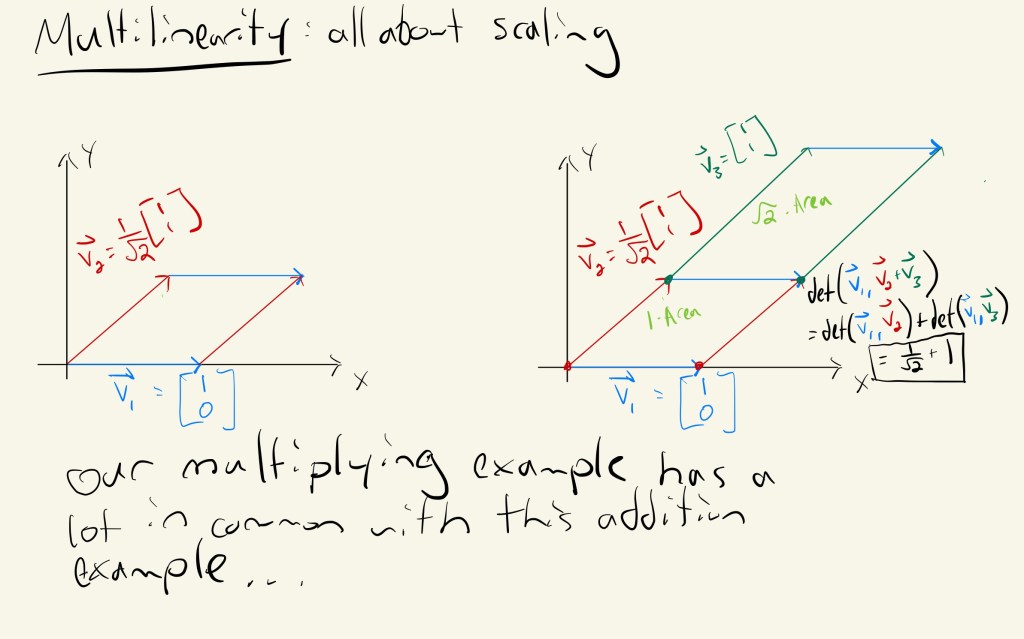 Multilinearity: all about scaling
Y
v⃗₂ = 1/√2 [1 1]
X
v⃗₁ = [1 0]
Y
v⃗₃ = [1 1]
√2 · Area
v⃗₂ = 1/√2 [1 1]
1 · Area
det(v⃗₁, v⃗₂+v⃗₃)
= det(v⃗₁, v⃗₂) + det(v⃗₁, v⃗₃)
= 1/√2 + 1
X
v⃗₁ = [1 0]
our multiplying example has a
lot in common with this addition
example...